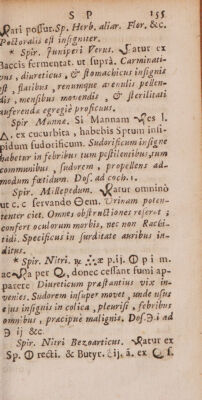 S P 155
Pari possut. Sp. Herb. aliar. Flor. &c.
Pectoralis est insigniter.
* Spir. Juniperi Verus. Paratur ex
Baccis fermentat. ut suprà. Carminati-
vus, diureticus, & stomachicus insignis
est, flatibus, renumque arenulis pellen-
dis, mensibus movendis, & sterilitati
auferenda egregiè proficuus.
* Spir. Mannæ. Si Mannam
△. ex cucurbita, habebis Sptum insi-
pidum sudorificum. Sudorificum insigne
habetur in febribus tum pestilentibus, tum
communibus, sudorem, propellens ad-
modum fœtidum. Dos. ad coch. 1.
* Spir. Millepedum. Paratur omninò
ut c. c servando Θem. Urinam poten-
tenter ciet. Omnes obstructiones reserat;
confert oculorum morbis, nec non Rachi-
tidi. Specificus in surditate auribus in-
ditus.
* Spir. Nitri. ℞ p.ij. p i m.
per donec cessant fumi ap-
parere Diureticum præstantius vix in-
venies. Sudorem insuper movet, unde usus
ejus insignis in colica, pleurisi, febribus
omnibus, præcipue malignis. Dos. Ʒ i ad
Ʒ ij &c.
* Spir. Nitri Bezoarticus. Paratur ex
Sp. rectisi. & Butyr. ij, ā. ex